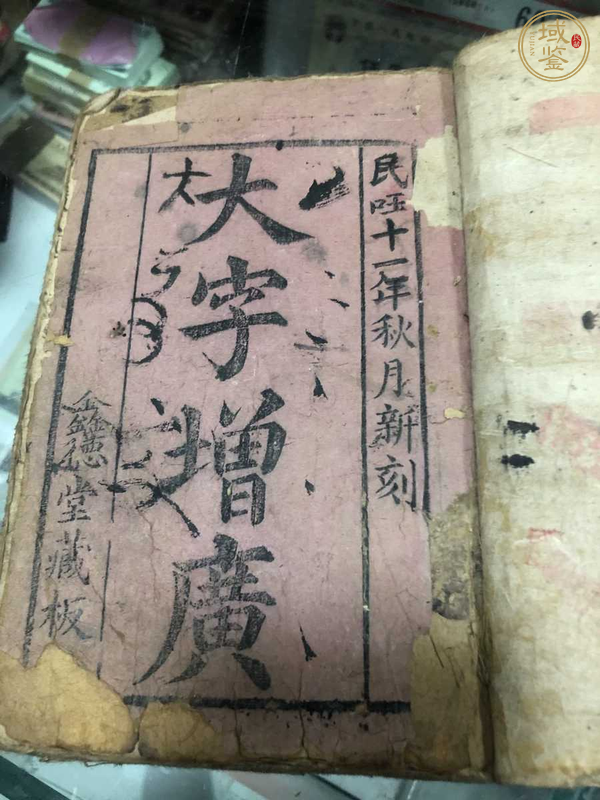 民国十一年秋月新刻
大字增廣
太
鑫德堂藏板
域鉴